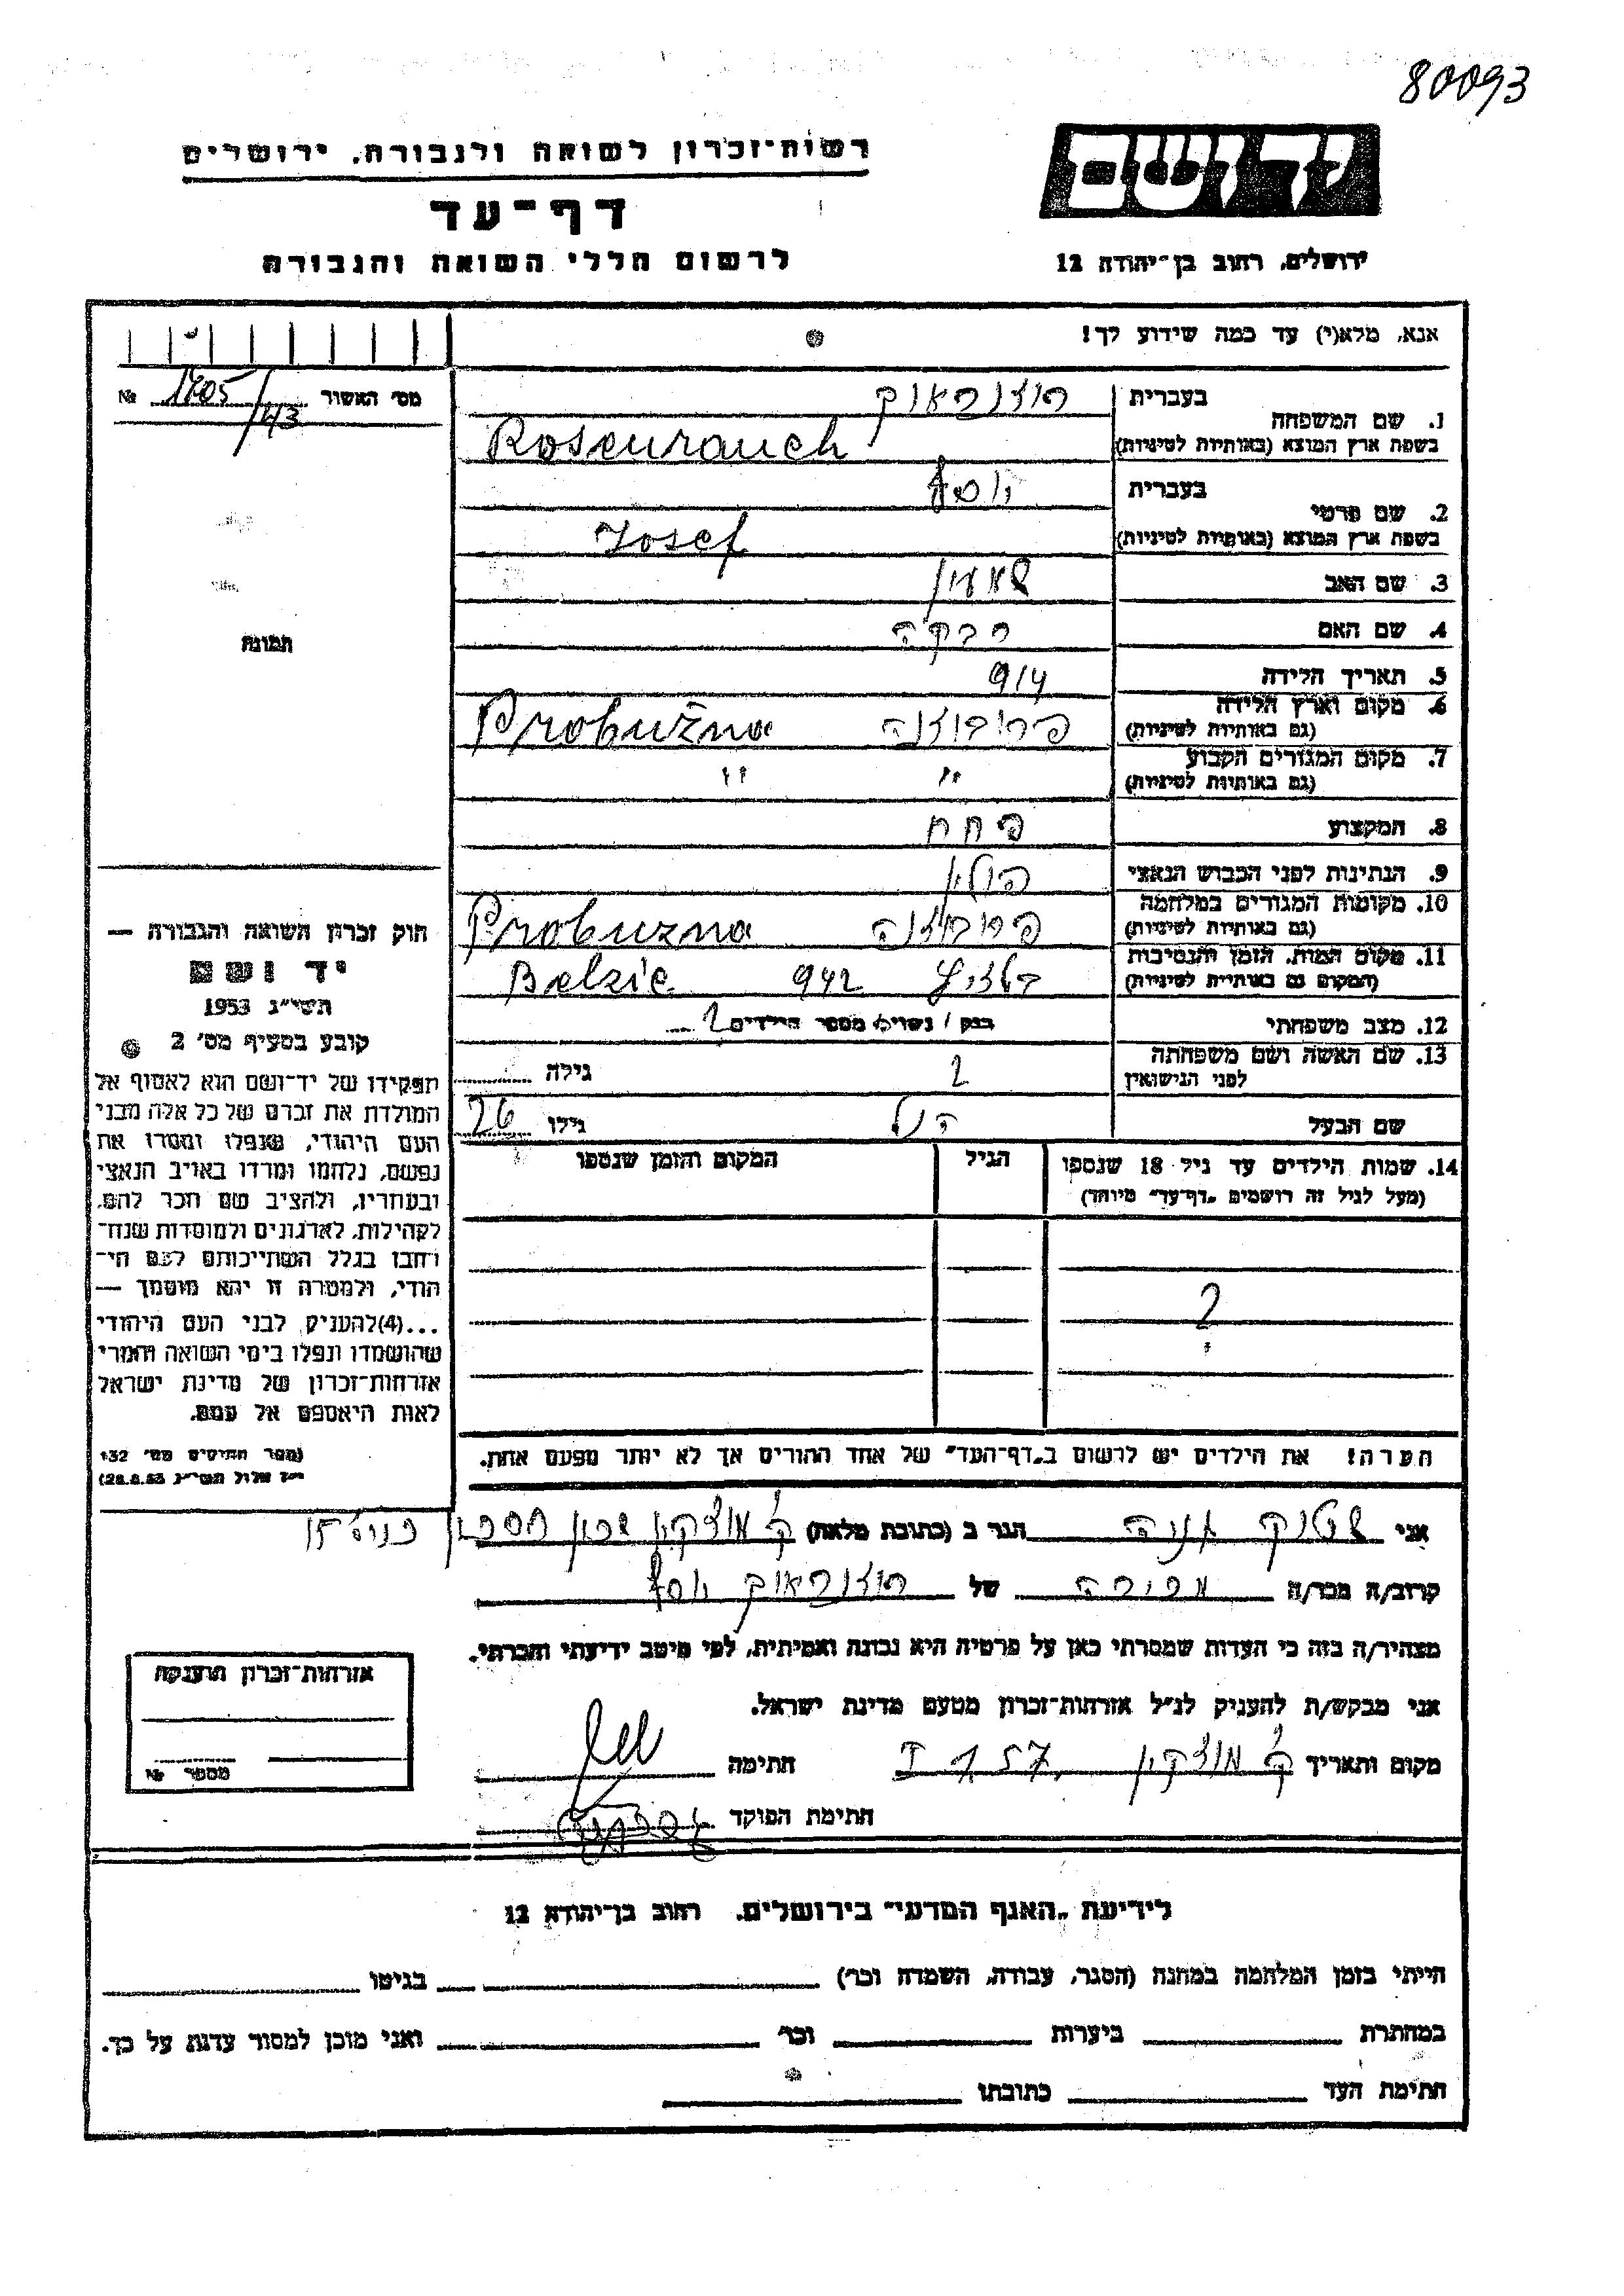 80093
רשות־זכרון לשואה ולגבורה, ירושלים
יד ושם
דף־עד
ירושלים, רחוב בן־יהודה 12
לרשום חללי השואה והגבורה
אנא, מלא(י) עד כמה שידוע לך!
מס׳ האשור 1705/43 №
תמונה
1. שם המשפחה
בעברית רוזנראוך
בשפת ארץ המוצא (באותיות לטיניות) Rosenrauch
2. שם פרטי
בעברית יוסף
בשפת ארץ המוצא (באותיות לטיניות) Josef
3. שם האב שמעון
4. שם האם רבקה
5. תאריך הלידה 914
6. מקום וארץ הלידה פרובוזנה Probużna
(גם באותיות לטיניות)
7. מקום המגורים הקבוע " "
(גם באותיות לטיניות)
8. המקצוע פחח
9. הנתינות לפני הכבוש הנאצי פולין
10. מקומות המגורים במלחמה פרובוזנה Probuzna
(גם באותיות לטיניות)
11. מקום המות, הזמן והנסיבות בלזיץ 942 Belzic
(המקום גם באותיות לטיניות)
12. מצב משפחתי רווק / נשוי/ מספר הילדים ?
13. שם האשה ושם משפחתה ? גילה
לפני הנישואין
שם הבעל הנ״ל גילו 26
14. שמות הילדים עד גיל 18 שנספו הגיל המקום והזמן שנספו
(מעל לגיל זה רושמים „דף־עד״ מיוחד)
?
חוק זכרון השואה והגבורה —
יד ושם
תשי״ג 1953
קובע בסעיף מס׳ 2
תפקידו של יד־ושם הוא לאסוף אל
המולדת את זכרם של כל אלה מבני
העם היהודי, שנפלו ומסרו את
נפשם, נלחמו ומרדו באויב הנאצי
ובעוזריו, ולהציב שם וזכר להם,
לקהילות, לארגונים ולמוסדות שנח־
רבו בגלל השתייכותם לעם הי־
הודי, ולמטרה זו יהא מוסמך —
...(4)להעניק לבני העם היהודי
שהושמדו ונפלו בימי השואה והמרי
אזרחות־זכרון של מדינת ישראל
לאות היאספם אל עמם.
(ספר החוקים מס׳ 132
י״ז אלול תשי״ג 28.8.53)
הערה! את הילדים יש לרשום ב„דף־העד״ של אחד ההורים אך לא יותר מפעם אחת.
אני שטוק אניה הגר ב (כתובת מלאה) ק׳ מוצקין שכון חסכון כניסה 15
קרוב/ה מכר/ה מכירה של רוזנראוך יוסף
מצהיר/ה בזה כי העדות שמסרתי כאן על פרטיה היא נכונה ואמיתית, לפי מיטב ידיעתי והכרתי.
אני מבקש/ת להעניק לנ״ל אזרחות־זכרון מטעם מדינת ישראל.
מקום ותאריך ק׳ מוצקין חתימה
חתימת הפוקד
אזרחות־זכרון הוענקה
מספר №
לידיעת „האגף המדעי״ בירושלים, רחוב בן־יהודה 12
הייתי בזמן המלחמה במחנה (הסגר, עבודה, השמדה וכו׳) בגיטו
במחתרת ביערות וכו׳ ואני מוכן למסור עדות על כך.
חתימת העד כתובתו